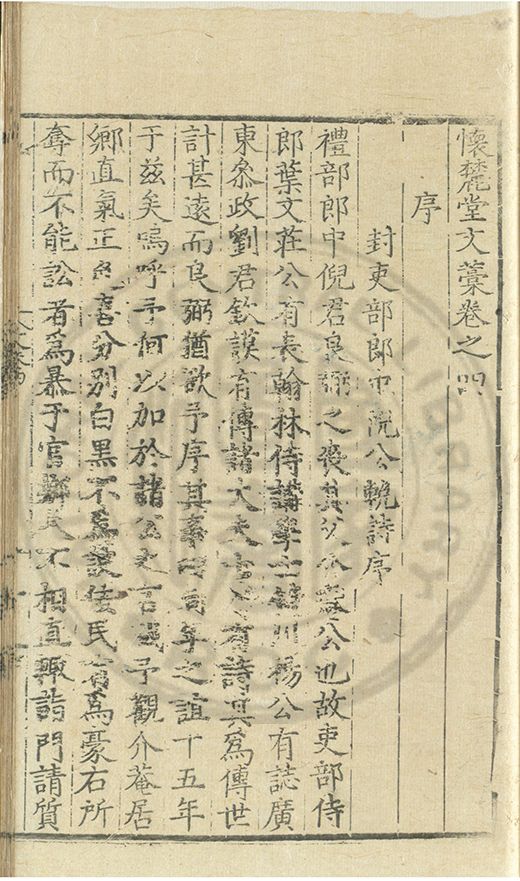 懷麓堂文藁卷之四
序
封吏部郎中倪公輓詩序
禮部郎中倪君良弼之喪其父介菴公也故吏部侍
郎葉文莊公有表翰林侍講學士 川楊公有誌廣
東叅政劉君欽謨有傳諸大夫士 有詩其爲傳世
計甚遠而良弼猶欲予序其事 同年之誼十五年
于兹矣嗚呼予何以加於諸公之言哉予觀介菴居
鄉直氣正色喜分别白黒不爲 民有爲豪右所
奪而不能訟者爲暴于官 不相直輒詣門請質